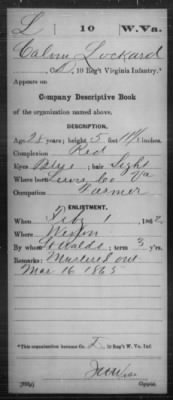 L 10 W.Va.
Calvin Lockard
, Co. , 10 Reg't Virginia Infantry.*
Appears on
Company Descriptive Book
of the organization named above.
DESCRIPTION.
Age 28 years; height 5 feet 11 1/2 inches.
Complexion Red
Eyes Blue; hair Light
Where born Lewis Co Va
Occupation Farmer
ENLISTMENT.
When Feb 1, 1862.
Where Weston
By ; term 3 y'rs.
Remarks: Mustered out
Mar 16 1865
*This organization became Co. I, 10 Reg't W. Va. Inf.
Copyist.